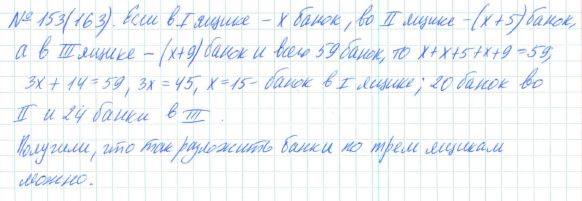 № 153(163). Если в I ящике - x банок, во II ящике - (x+5) банок,
а в III ящике - (x+9) банок и всего 59 банок, то x+x+5+x+9=59,
3x+14=59, 3x=45, x=15- банок в I ящике; 20 банок во
II и 24 банки в III.
Получили, что так разложить банки по трем ящикам
можно.